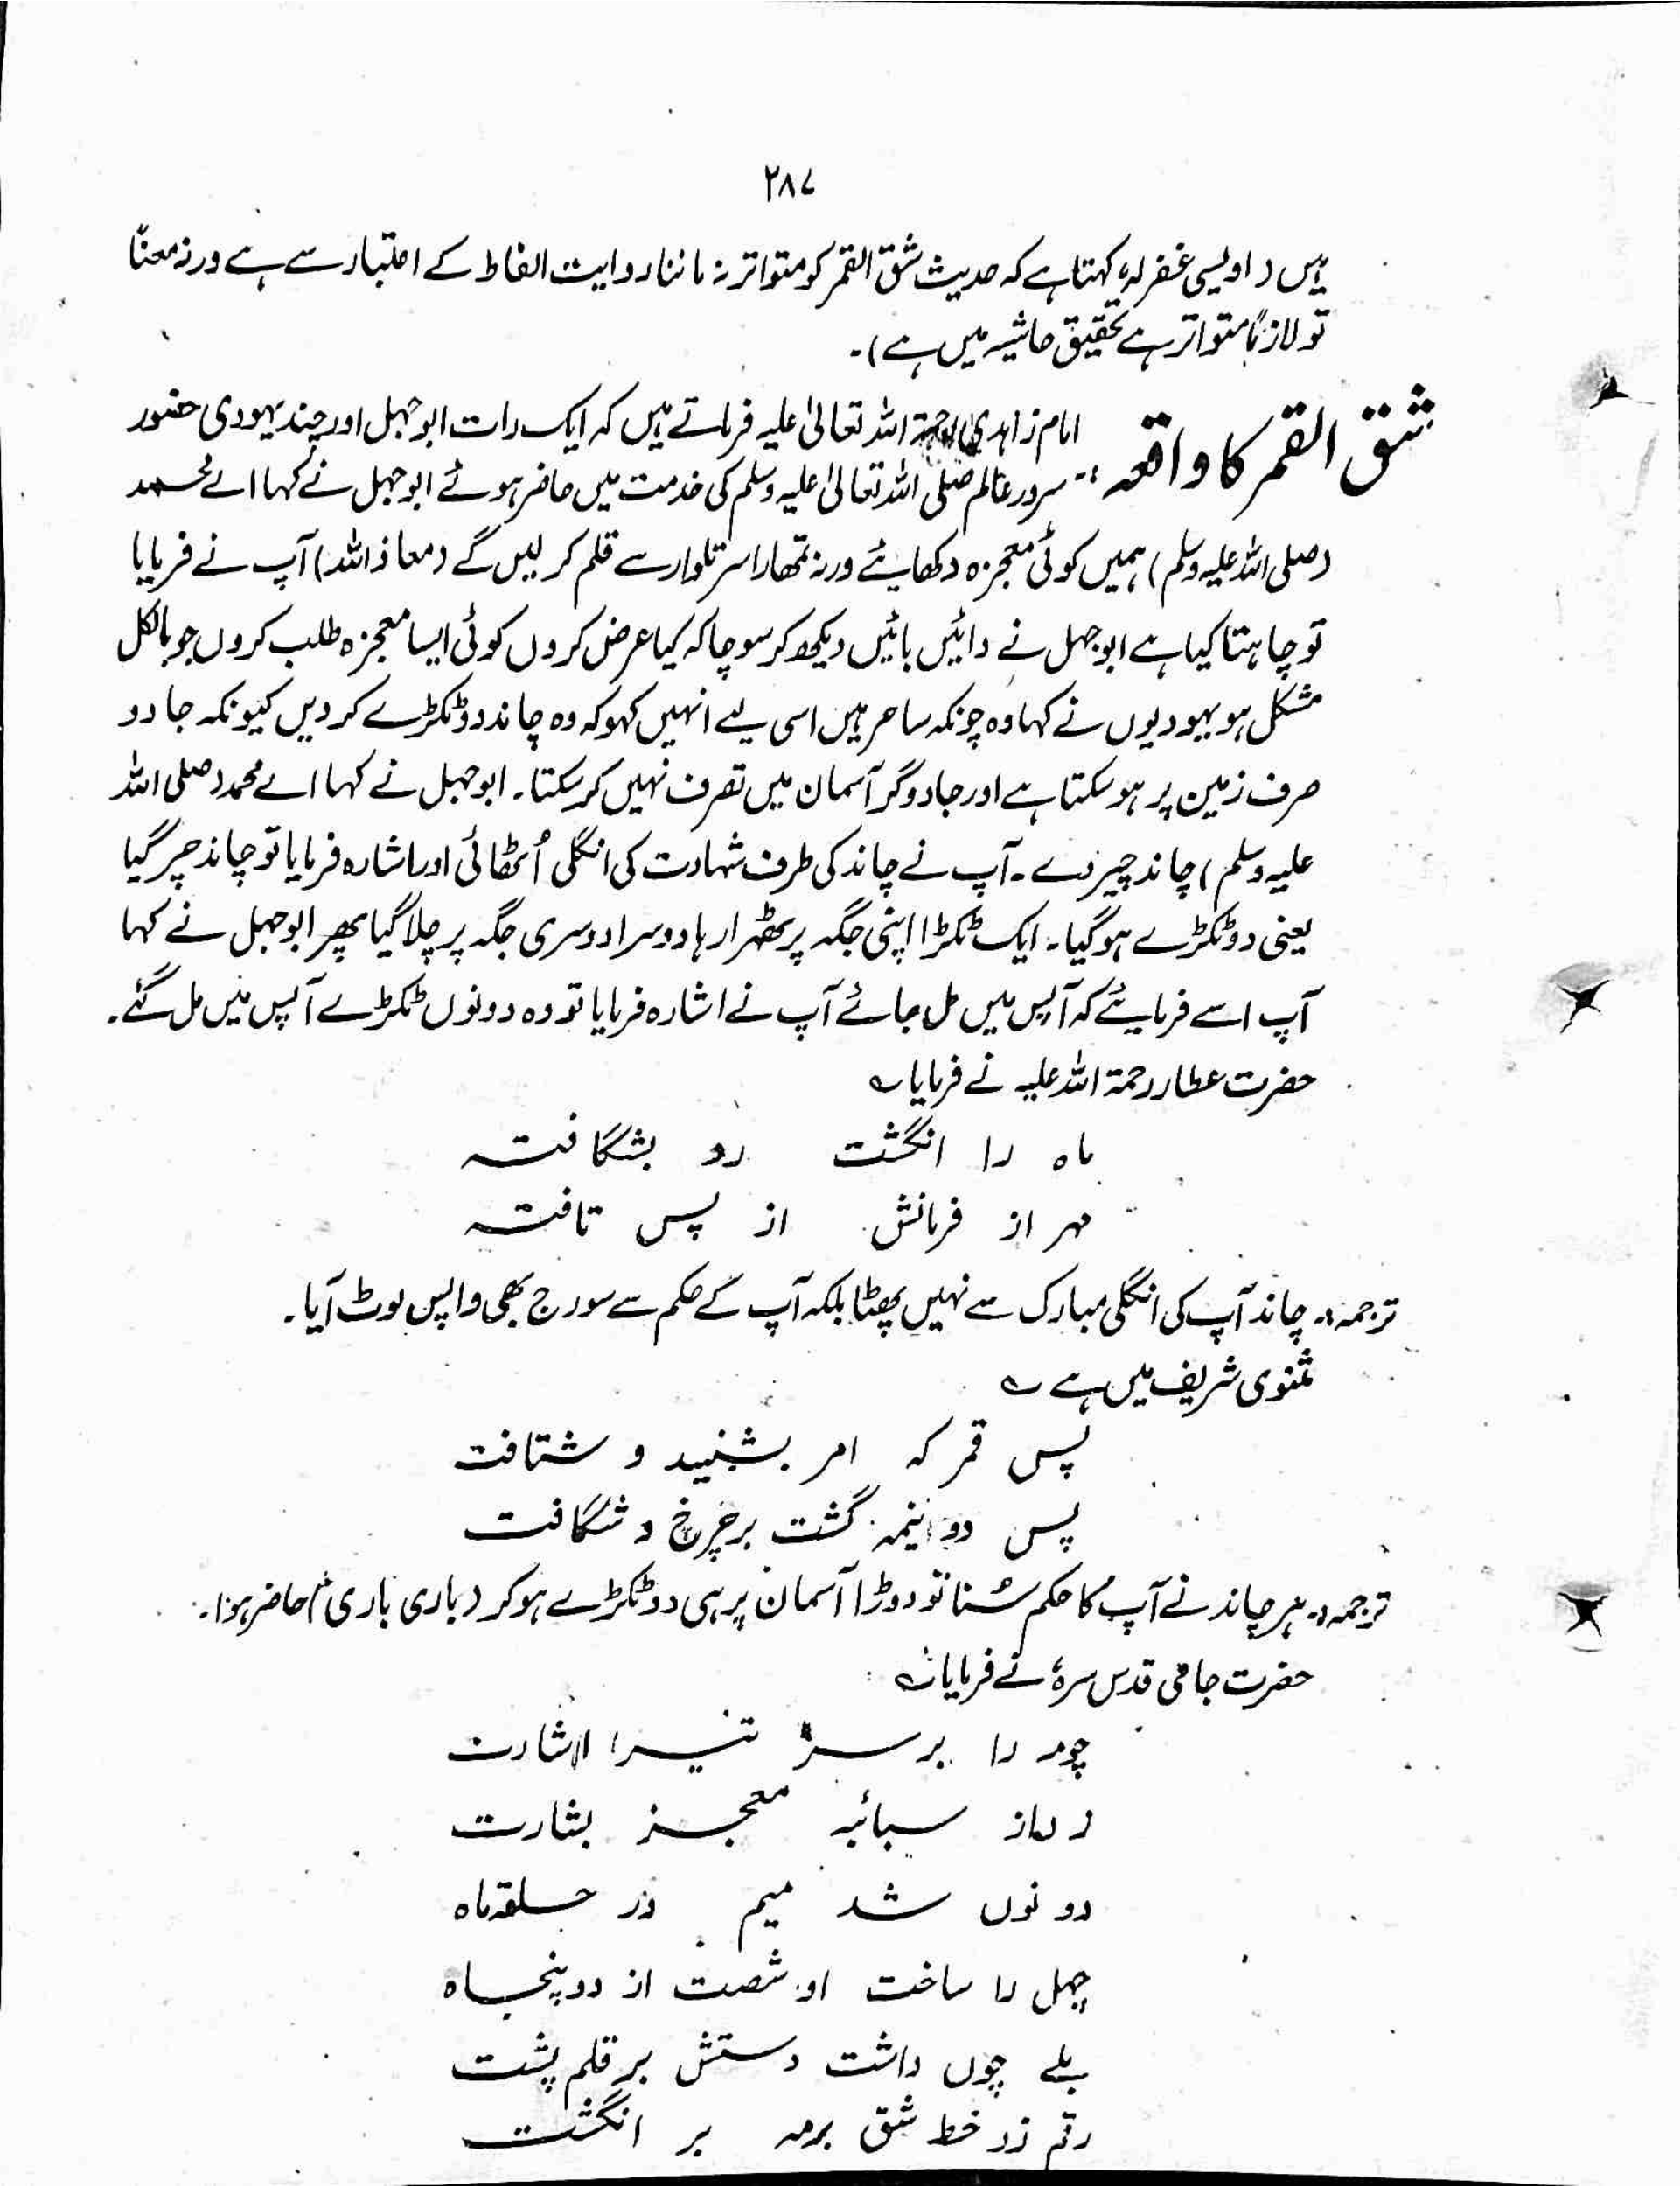 ۲۸۷
ہیں (اویسی غفرلہ) کہتا ہے کہ حدیث شق القمر کو متواتر نہ ماننا روایت الفاظ کے اعتبار سے ہے ورنہ معناً
تو لازماً متواتر ہے تحقیق حاشیہ میں ہے)۔
شق القمر کا واقعہ :- امام زاہدی رحمۃ اللہ تعالیٰ علیہ فرماتے ہیں کہ ایک رات ابوجہل اور چند یہودی حضور
سرور عالم صلی اللہ تعالیٰ علیہ وسلم کی خدمت میں حاضر ہوئے ابوجہل نے کہا اے محمد
(صلی اللہ علیہ وسلم) ہمیں کوئی معجزہ دکھایئے ورنہ تمھارا سر تلوار سے قلم کر لیں گے (معاذ اللہ) آپ نے فرمایا
تو چاہتا کیا ہے ابوجہل نے دائیں بائیں دیکھ کر سوچا کہ کیا عرض کروں کوئی ایسا معجزہ طلب کروں جو بالکل
مشکل ہو یہودیوں نے کہا وہ چونکہ ساحر ہیں اسی لیے انہیں کہو کہ وہ چاند دو ٹکڑے کر دیں کیونکہ جادو
صرف زمین پر ہو سکتا ہے اور جادوگر آسمان میں تصرف نہیں کر سکتا۔ ابوجہل نے کہا اے محمد (صلی اللہ
علیہ وسلم) چاند چیر دے۔ آپ نے چاند کی طرف شہادت کی انگلی اُٹھائی اور اشارہ فرمایا تو چاند چر گیا
یعنی دو ٹکڑے ہو گیا۔ ایک ٹکڑا اپنی جگہ پر ٹھہرا رہا دوسرا دوسری جگہ پر چلا گیا پھر ابوجہل نے کہا
آپ اسے فرمایئے کہ آپس میں مل جائے آپ نے اشارہ فرمایا تو وہ دونوں ٹکڑے آپس میں مل گئے۔
حضرت عطار رحمۃ اللہ علیہ نے فرمایا ؎
ماہ را انگشت رو بشگافتہ
مہر از فرمانش از پس تافتہ
ترجمہ:۔ چاند آپ کی انگلی مبارک سے نہیں پھٹا بلکہ آپ کے حکم سے سورج بھی واپس لوٹ آیا۔
مثنوی شریف میں ہے ؎
پس قمر کہ امر بشنید و شتافت
پس دو نیمہ گشت برچرخ و شگافت
ترجمہ:۔ پھر چاند نے آپ کا حکم سُنا تو دوڑا آسمان پر ہی دو ٹکڑے ہو کر (باری باری) حاضر ہوا۔
حضرت جامی قدس سرہٗ نے فرمایا ؎
چومہ را بر سر اشارت
از سبابہ معجز بشارت
دو نوں شد میم در حلقہ ماہ
چہل را ساخت او شصت از دو پنجاہ
بلے چوں داشت دستش بر قلم پشت
رقم زد خط شق برمہ بر انگشت